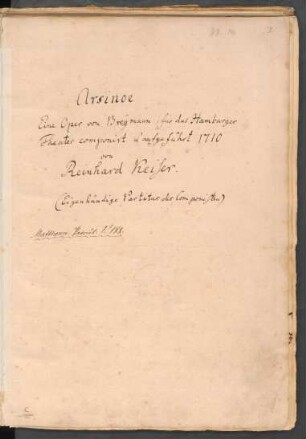 Arsinoe
Eine Oper von Breymann, für das Hamburger
Theater componirt u aufgeführt 1710
von
Reinhard Keiser.
(Eigenhändige Partitur des Componisten)